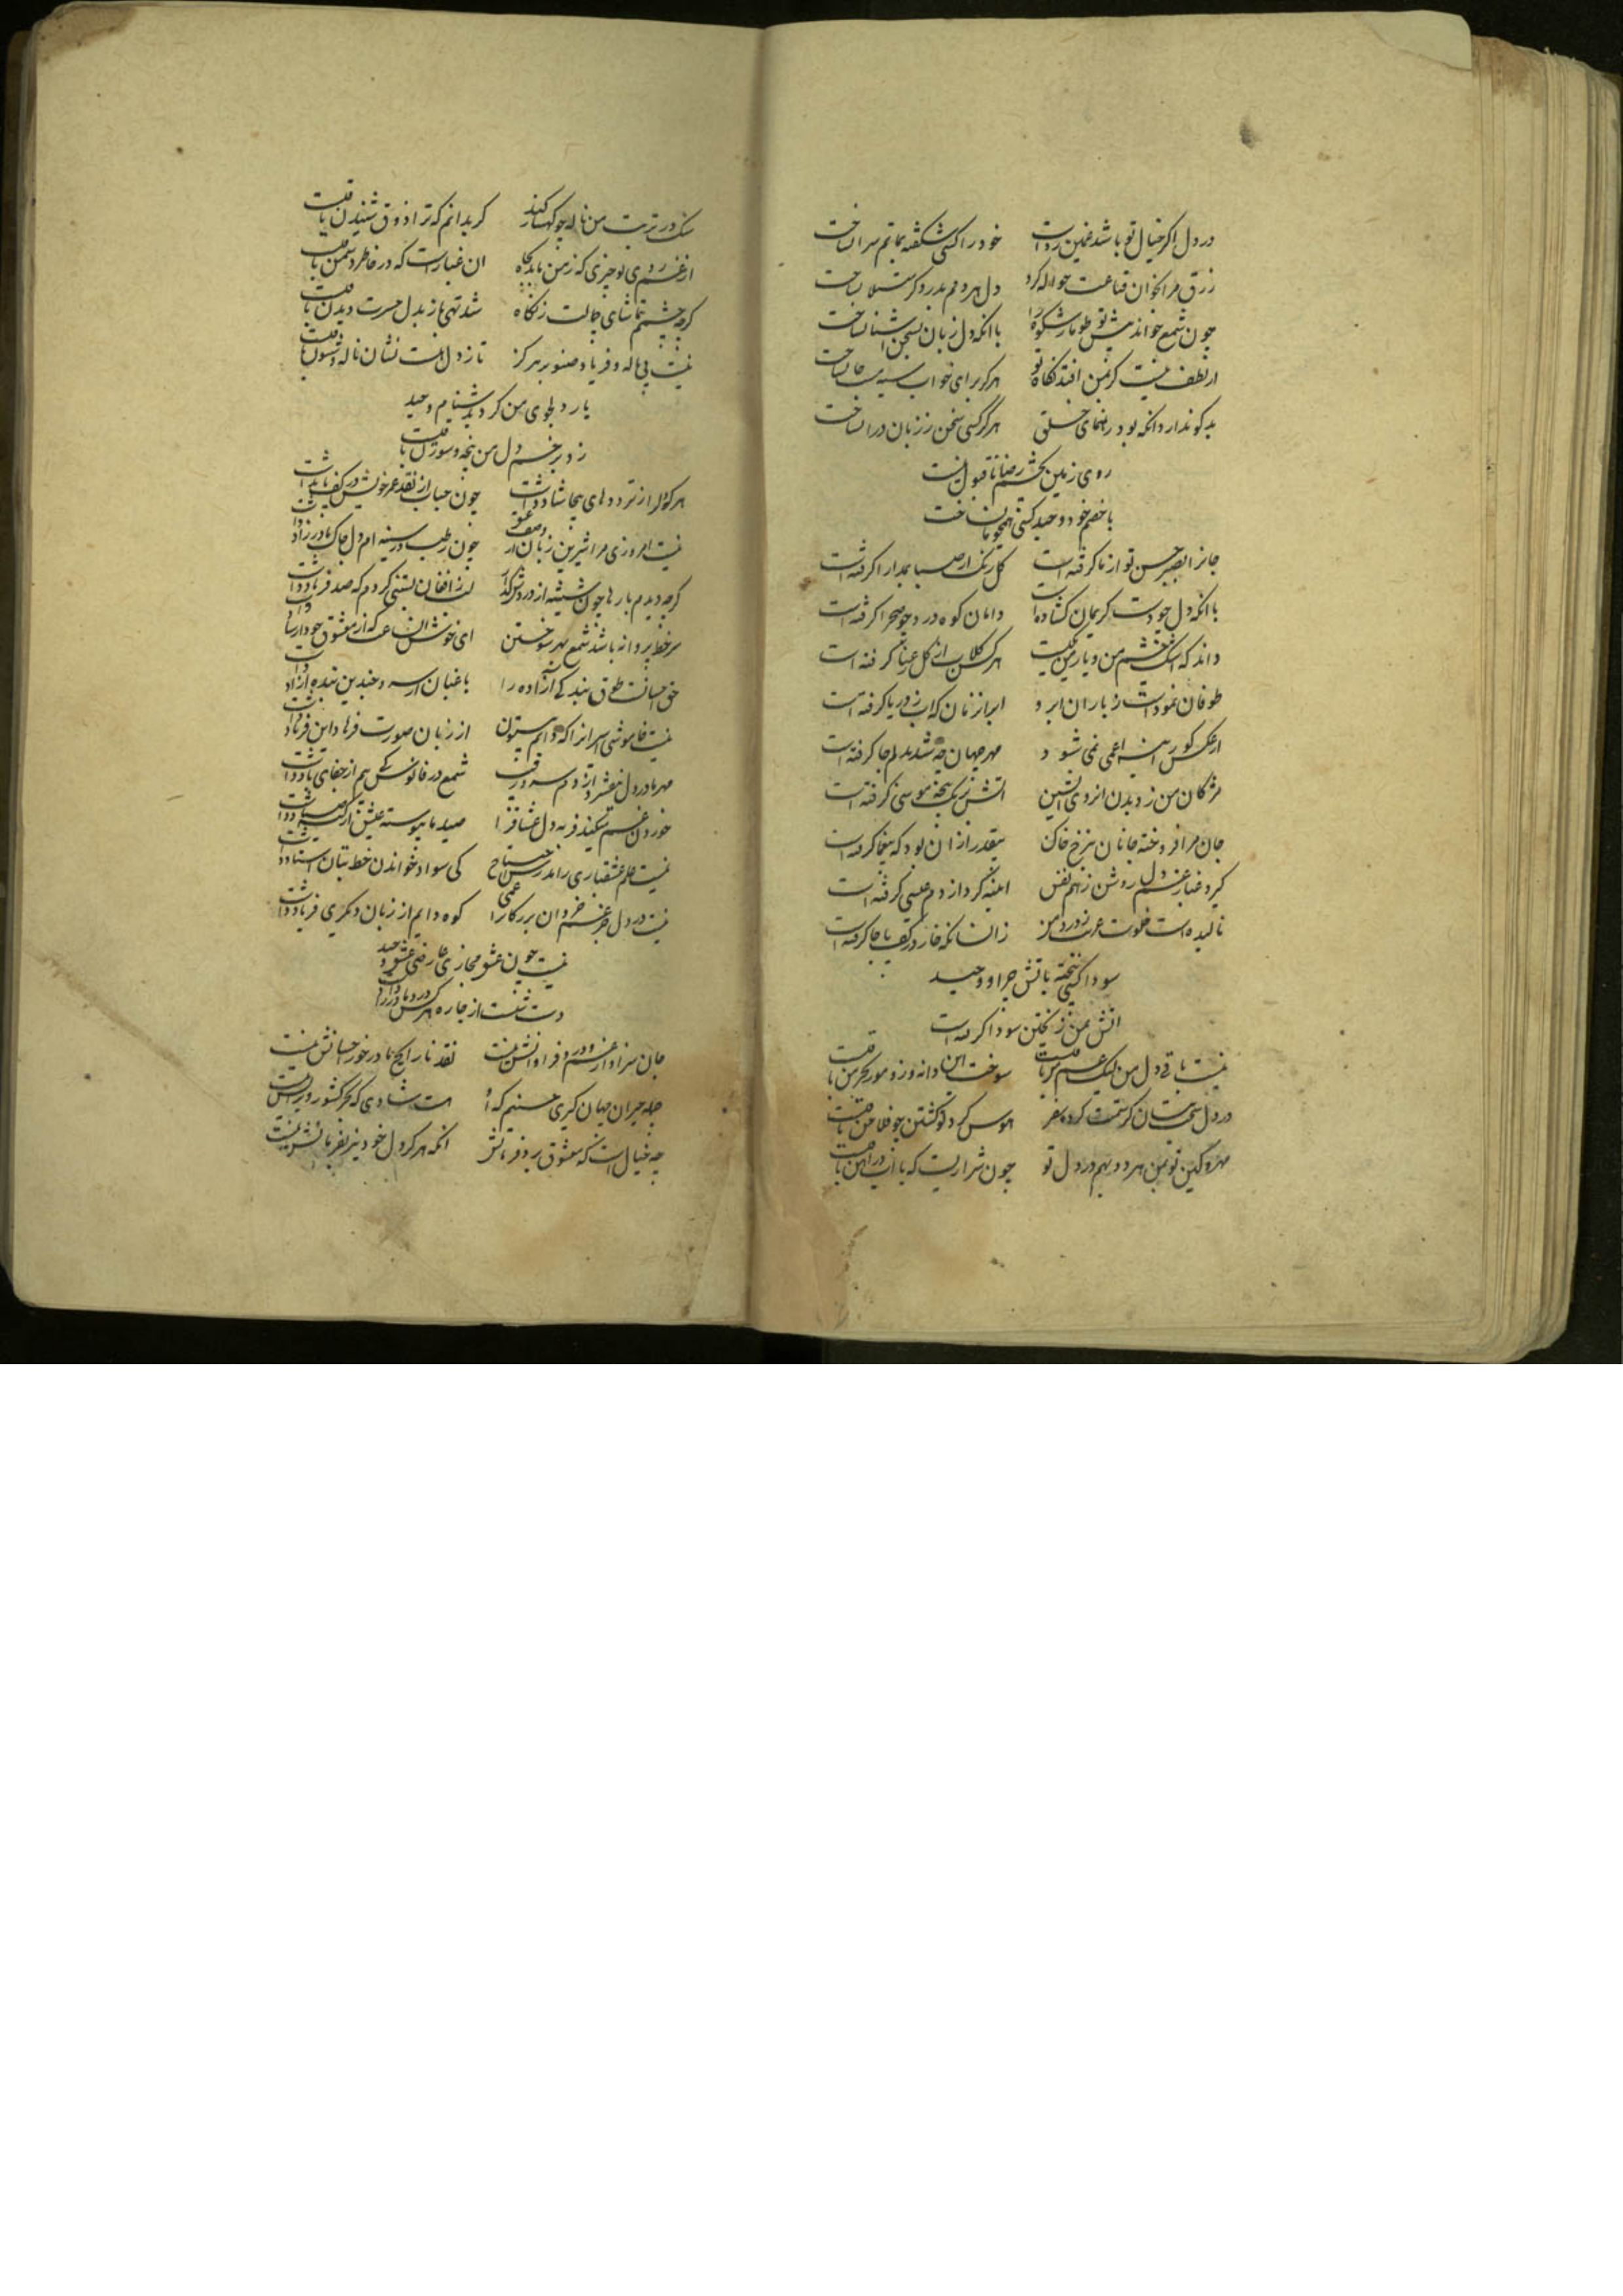 در دل اگر خیال تو باشد غمین رواست خود را کسی شکفته بماتم سرا نساخت
رزق مرا بخوان قناعت حواله کرد دل بهر دم بدرد کرم مبتلا نساخت
چون شمع خواند پیش تو طومار شکوه را با آنکه دل زبان بسخن آشنا نساخت
از لطف نیست گر بمن افتد نگاه تو هرگز برای خواب سیه مست جا نساخت
بد گو ندارد آنکه بود رهنمای خلق هرگز کسی سخن ز زبان درا نساخت
روی زمین بچشم رضا ناقبول نیست
با خصم خود وحید کسی همچو ما نساخت
جانرا بصبر حسن تو از ما گرفته است گل رنگ از صبا بمدارا گرفته است
با آنکه دل چو دست کریمان گشاده است دامان کوه درد چو صحرا گرفته است
داند که اشک چشم من و یار من یکیست هر کس گلاب از گل رعنا گرفته است
طوفان نمود است ز باران ابر و ابر از زمان که آب ز دریا گرفته است
از عکس کور آینه اعمی نمی شود مهر جهان چه شد بدلم جا گرفته است
مژگان من ز دیدن آن روی آتشین آتش برنگ پنجه موسی گرفته است
جان مرا فروخته جانان بنرخ خاک بیقدر از آن بود که بیغما گرفته است
گیرد غبار غم دل روشن ز هم نفس آیینه گرد از دم عیسی گرفته است
نالیده است خلوت عزلت ز درد من زانسانکه خار در کف پا جا گرفته است
سودا کسی نپخته بآتش چرا وحید
آتش بمن ز پختن سودا گرفته است
نیست باقی دل من لیک غم من باقیست سوخت این دانه و زو مور بخرمن باقیست
در دل سخت بتان گر ستمت کرده سفر هوس گرد تو گشتن چو فلاخن باقیست
مهر و کین تو بمن هر دو بهم در دل تو چون شراریست که با آب در آهن باقیست
سنگ در تربت من ناله چو کهسار کند گر بدانم که ترا ذوق شنیدن باقیست
از غم روی تو چیزی که ز من ماند بجا آن غبار است که در خاطر دشمن باقیست
گرچه چشمم بتماشای جمالت ز نگاه شد تهی باز بدل حسرت دیدن باقیست
نیست بی ناله و فریاد صنوبر هرگز تا ز دل هست نشان ناله و شیون باقیست
یار دلجوی من گردید بدشنام وحید
زد بزخم دل من پنجه و سوزن باقیست
هر که دل از ترددهای بیجا شاد داشت چون حباب از نقد عمر خویش در کف باد داشت
نیست امروزی مرا شیرین زبان از وصف عشق چون رطب در سینه ام دل چاک مادرزاد داشت
گرچه دیدم بارها چون شیشه از دردش گداز لب ز افغان بستنی کردم که صد فریاد داشت
سر خط پروانه باشد شمع بهر سوختن ای خوش آن عاشق که از معشوق خود ارشاد داشت
حق احسانست طوق بندگی آزاده را باغبان از سرو چندین بنده آزاد داشت
نیست خاموشی اسرار آنرا که دایم بیستون از زبان صورت فرهاد این فریاد داشت
مهر ما در دل نیفشرد از دم سرد رقیب شمع در فانوس کی بیم از جفای باد داشت
خوردن غم میکند فربه دل عشاق را صید ما پیوسته عیش از کیسه صیاد داشت
نیست علم عشقبازی را بدرس احتیاج کی سواد خواندن خط بتان استاد داشت
نیست در دل جز غم خسروان پرکار را کوه دایم از زبان دیگری فریاد داشت
نیست چون عشق مجازی عارضی عشق وحید
دست شست از چاره هر کس درد مادرزاد داشت
جان سزاوار غم و درد فراوانش نیست نقد نارایج ما در خور احسانش نیست
جمله حیران جهان گیری حسنیم که او هست شاهی که بجز کشور ویرانش نیست
چه خیال است که معشوق برد فرمانش آنکه هرگز دل خود نیز بفرمانش نیست